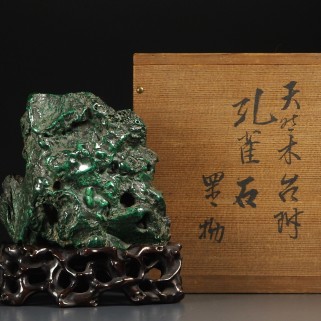 天然木台附
孔雀石
置物